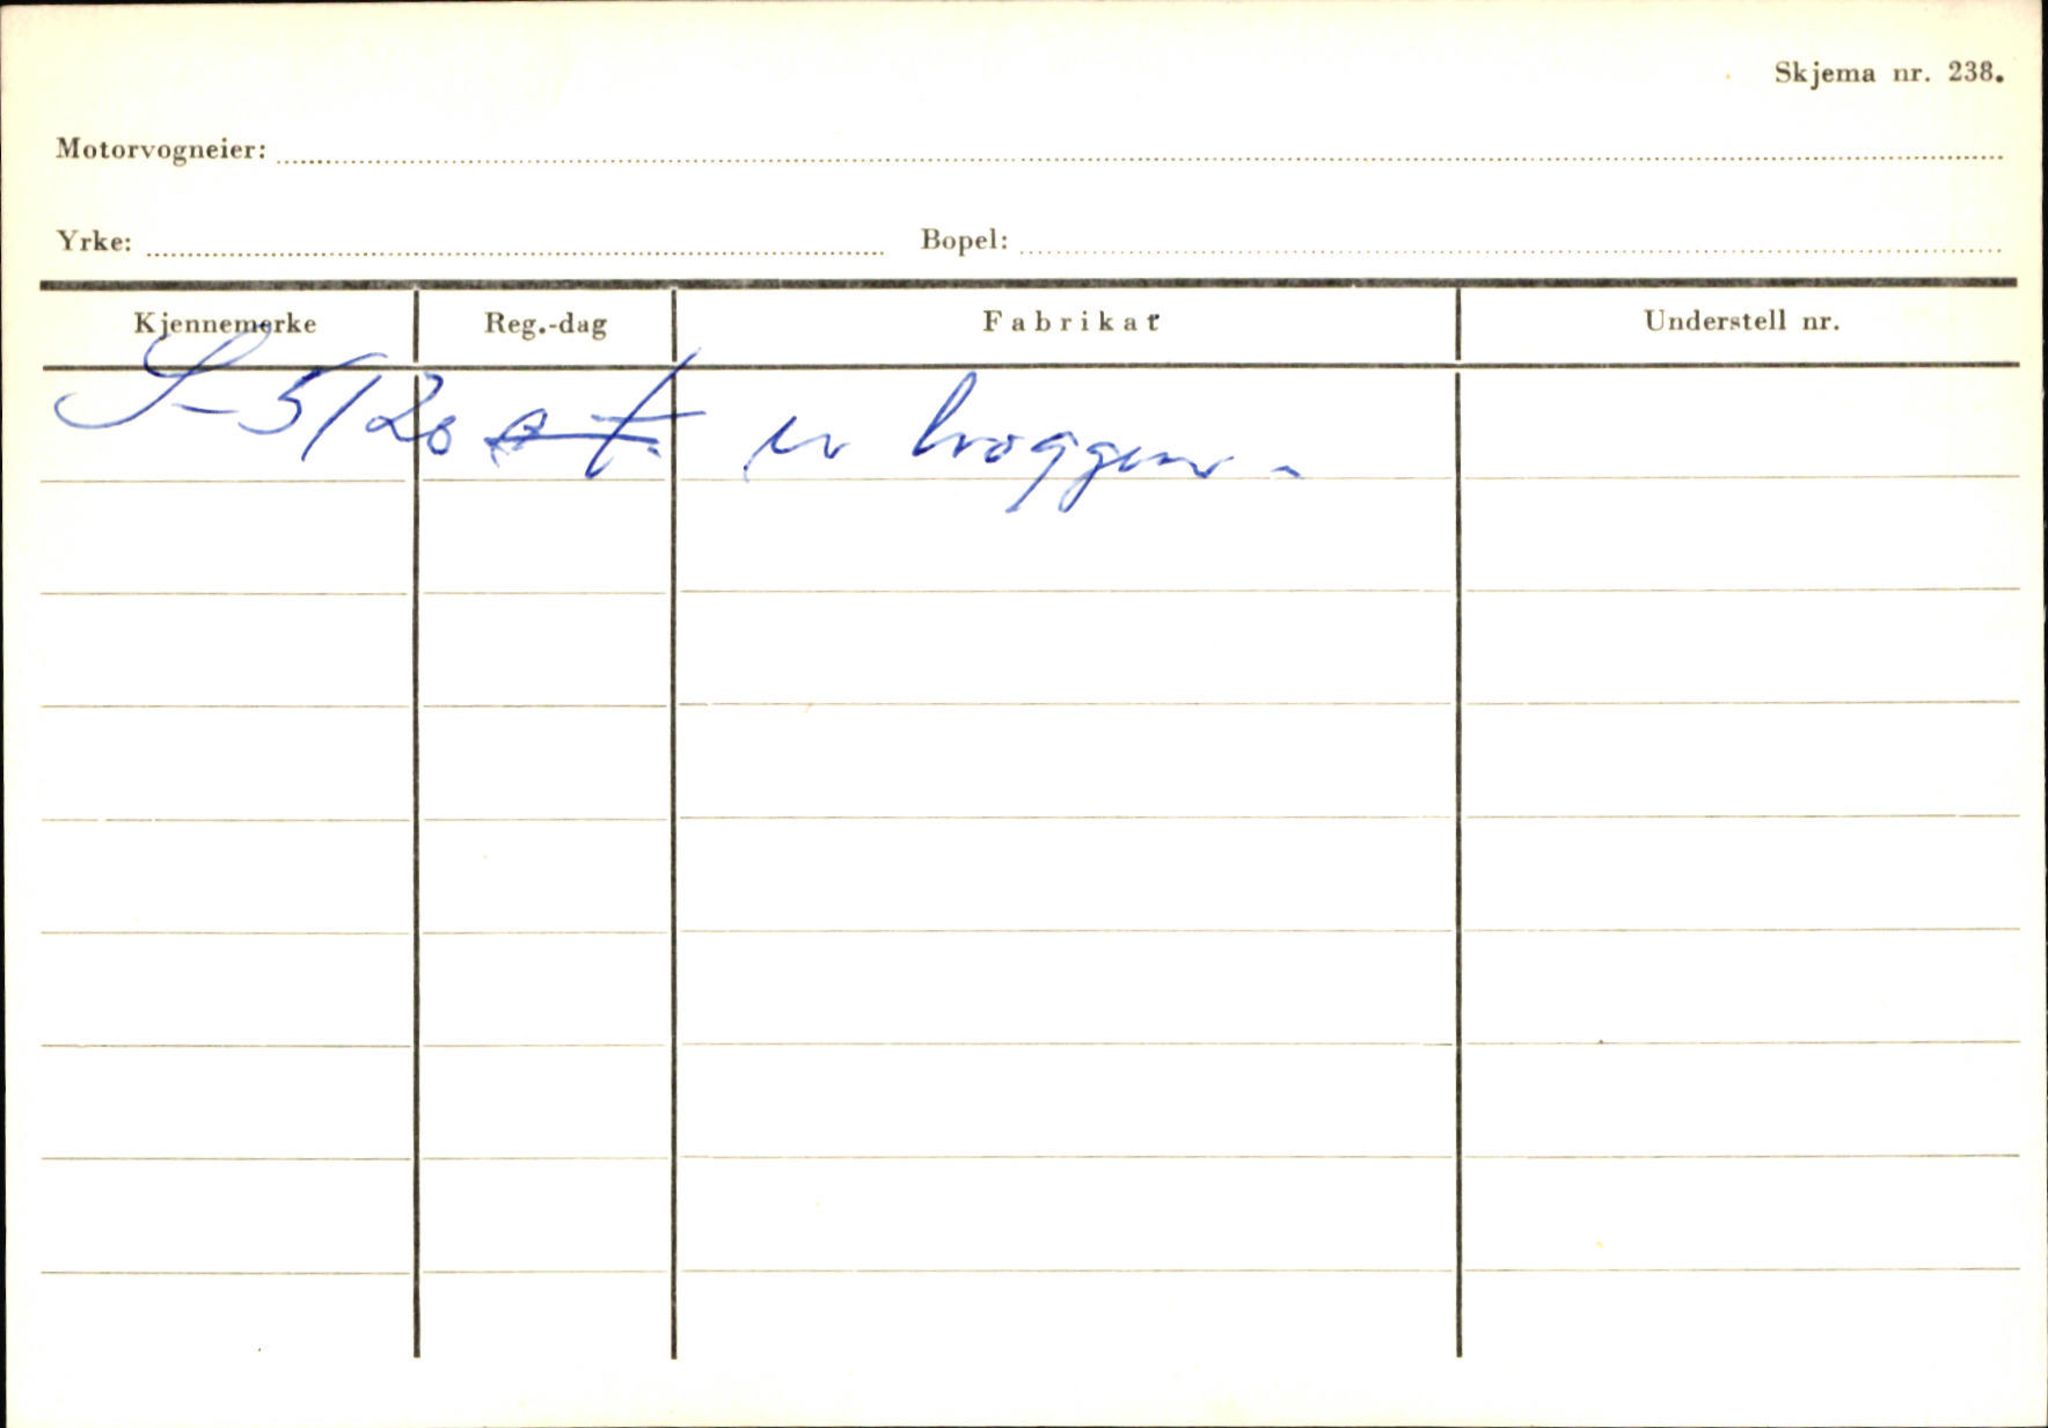 Skjema nr. 238.
Motorvogneier:
Yrke: Bopel:
Kjennemerke Reg.-dag Fabrikat Understell nr.
S-5120 er